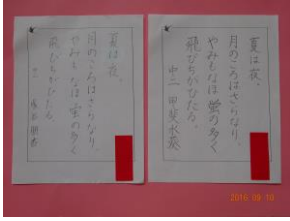 夏は夜。
月のころはさらなり。
やみもなほ蛍の多く
飛びちがひたる。
甲斐
夏は夜。
月のころはさらなり。
やみもなほ蛍の多く
飛びちがひたる。
2016 09 10